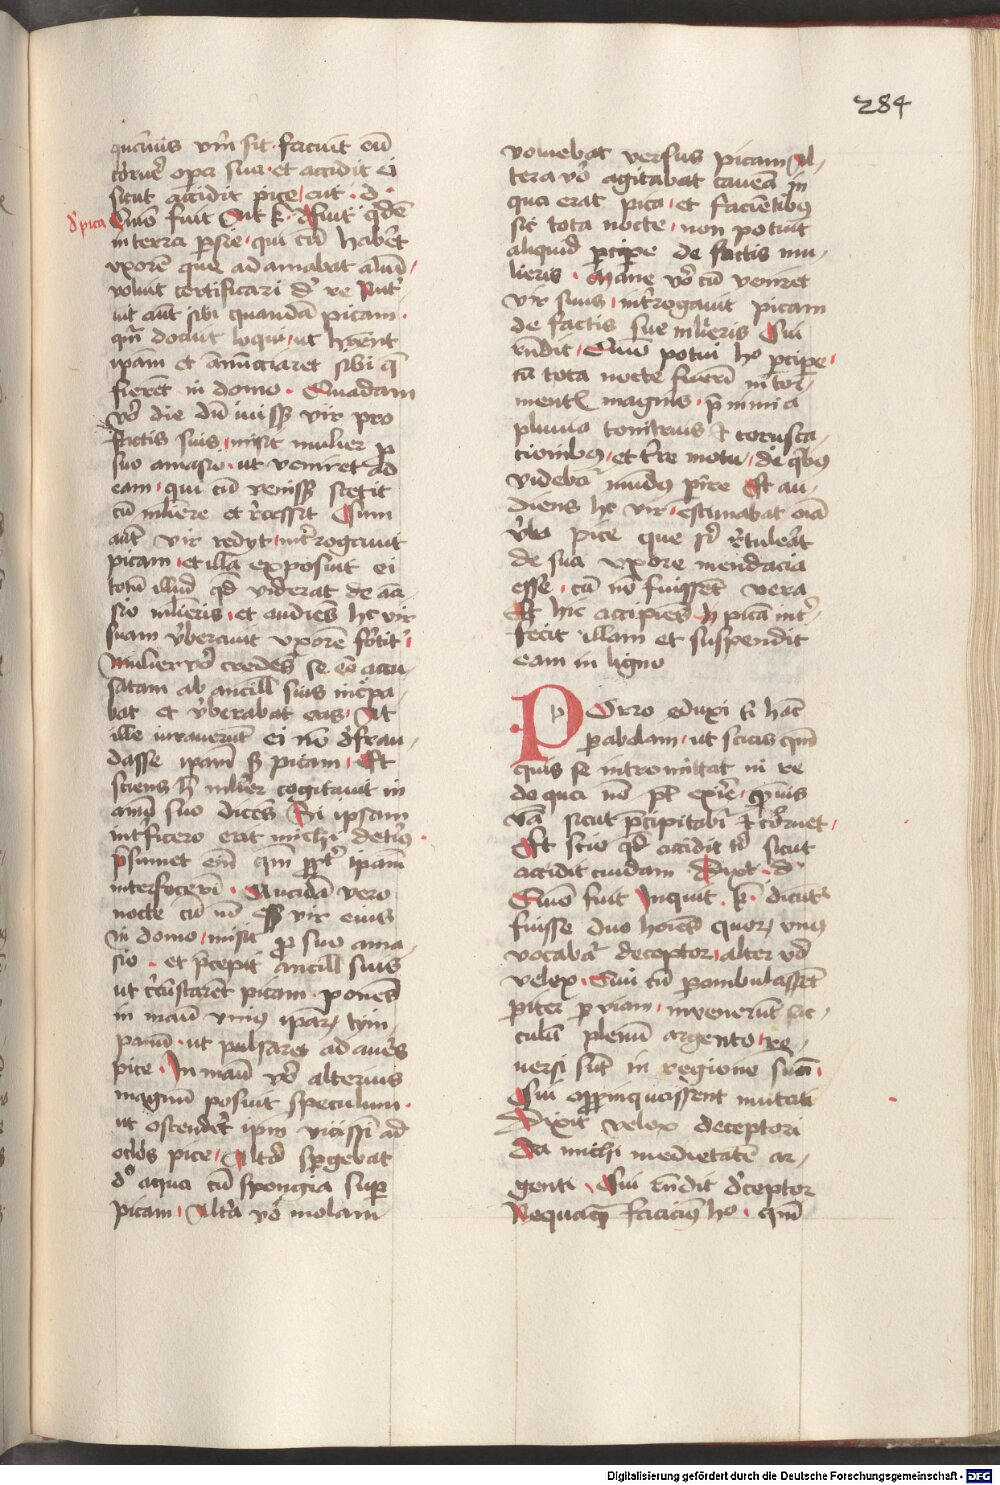 284
quamuis vm̄ sit · faciūt eū
corrue᷑ opa sua · et accidit ei
sicut accidit pice / ait · d ·
d' pica Quō fuit Ait k · Fuit q̄dē
in terra psie / qui cū habēt
vxorē que adamabat aliū /
voluit certificari d' re Nut᷑
iit aūt sibi quandā picam ·
qm̄ docuit loqui / ut hēēnt
ipam et an̄nūciaret sibi q̄
fierēt in domo · Quadam
vō die dū iuiss᷑ vir pro
factis suis / misit mulier p
suo amasio · ut veniret ad
eam / qui cū veniss᷑ stetit
cū mliere et rēcessit Cum
aūt vir redyt / int'rogauit
picam / et illa exposuit ei
totū illud qd viderat de ama
sio mlieris / et audiēs hc vir
suam v'berauit vxorē fortit᷑ /
Mulier vō credēs se eē accu
satam ab ancill suis incpa
bat et v'berabat eas / At
ille iurauerūt ei nō d'frau /
dasse ipam s᷑ picam / Et
sciens h mlier cogitauit in
aīo suo dicēs Si ipsam
int'ficero erit michi det'iꝰ ·
psumet eiḿ qm̄ ppt᷑ ipam
interfecerī · Quadā vero
nocte cū nō eēt vir eius
in domo / misit p suo ama
sio · et p̄cepit ancill suis
ut c'cūstarēt picam · ponēs
in manū vniꝰ ipaꝝ tym
panū · ut pulsaret ad aurēs
pice · In manū vō alterius
magnū posuit speculum ·
ut ostendēt ipm vicissī ad
oclos pice / Alt'a spgebat
d' aqua cū spongia sup
picam / Alt'a vō molam
voluebat versus picam Al /
tera vō agitabat caueā in
qua erat pica / et faciētibꝰ
sic tota nocte / non potuit
aliquid pcipe de factis mu /
lieris · Mane vō cū veniret
vir suus / int'rogauit picam
de factis sue mlieris Cui
rn̄dit / Quō potui hoc pcipe /
cū tota nocte fuerī in tor /
mentꝭ magnis / p nimia
pluuia tonitruis et corusca /
tionibꝰ / et t're motu / de qbꝰ
videbat᷑ mundꝰ pire Et au /
diens hc vir / estimabat oīa
v'ba pice que sī rētuleāt
de sua vxore mendacia
esse / cū nō fuissēt vera
Et hic accipiēs h picā int' /
fecit illam et suspendit
eam in ligno
POrro eduxi tī hāc
pabolam / ut scias qm̄
quis se intromittat in re
de qua nō pt exire / quīs
vā sicut pcipitabit᷑ et corruet /
Et scio qd accidit tī sicut
accidit cuidam · Dixit · d ·
Quō fuit Inquit · k · dicūt᷑
fuisse duo hoīes quoꝝ vnꝰ
vocabat᷑ deceptor / alter vō
velox · Qui cū pambulassēt
pariter p viam / inuenerūt sac
culū plenū argento / re /
uersi sūt in regionē suā ·
Qui appinquassent mutati
Dixit velox deceptori
Da michi medietatē ar /
genti · Cui rn̄dit d'ceptor
Nequaqm faciam hoc · qm̄